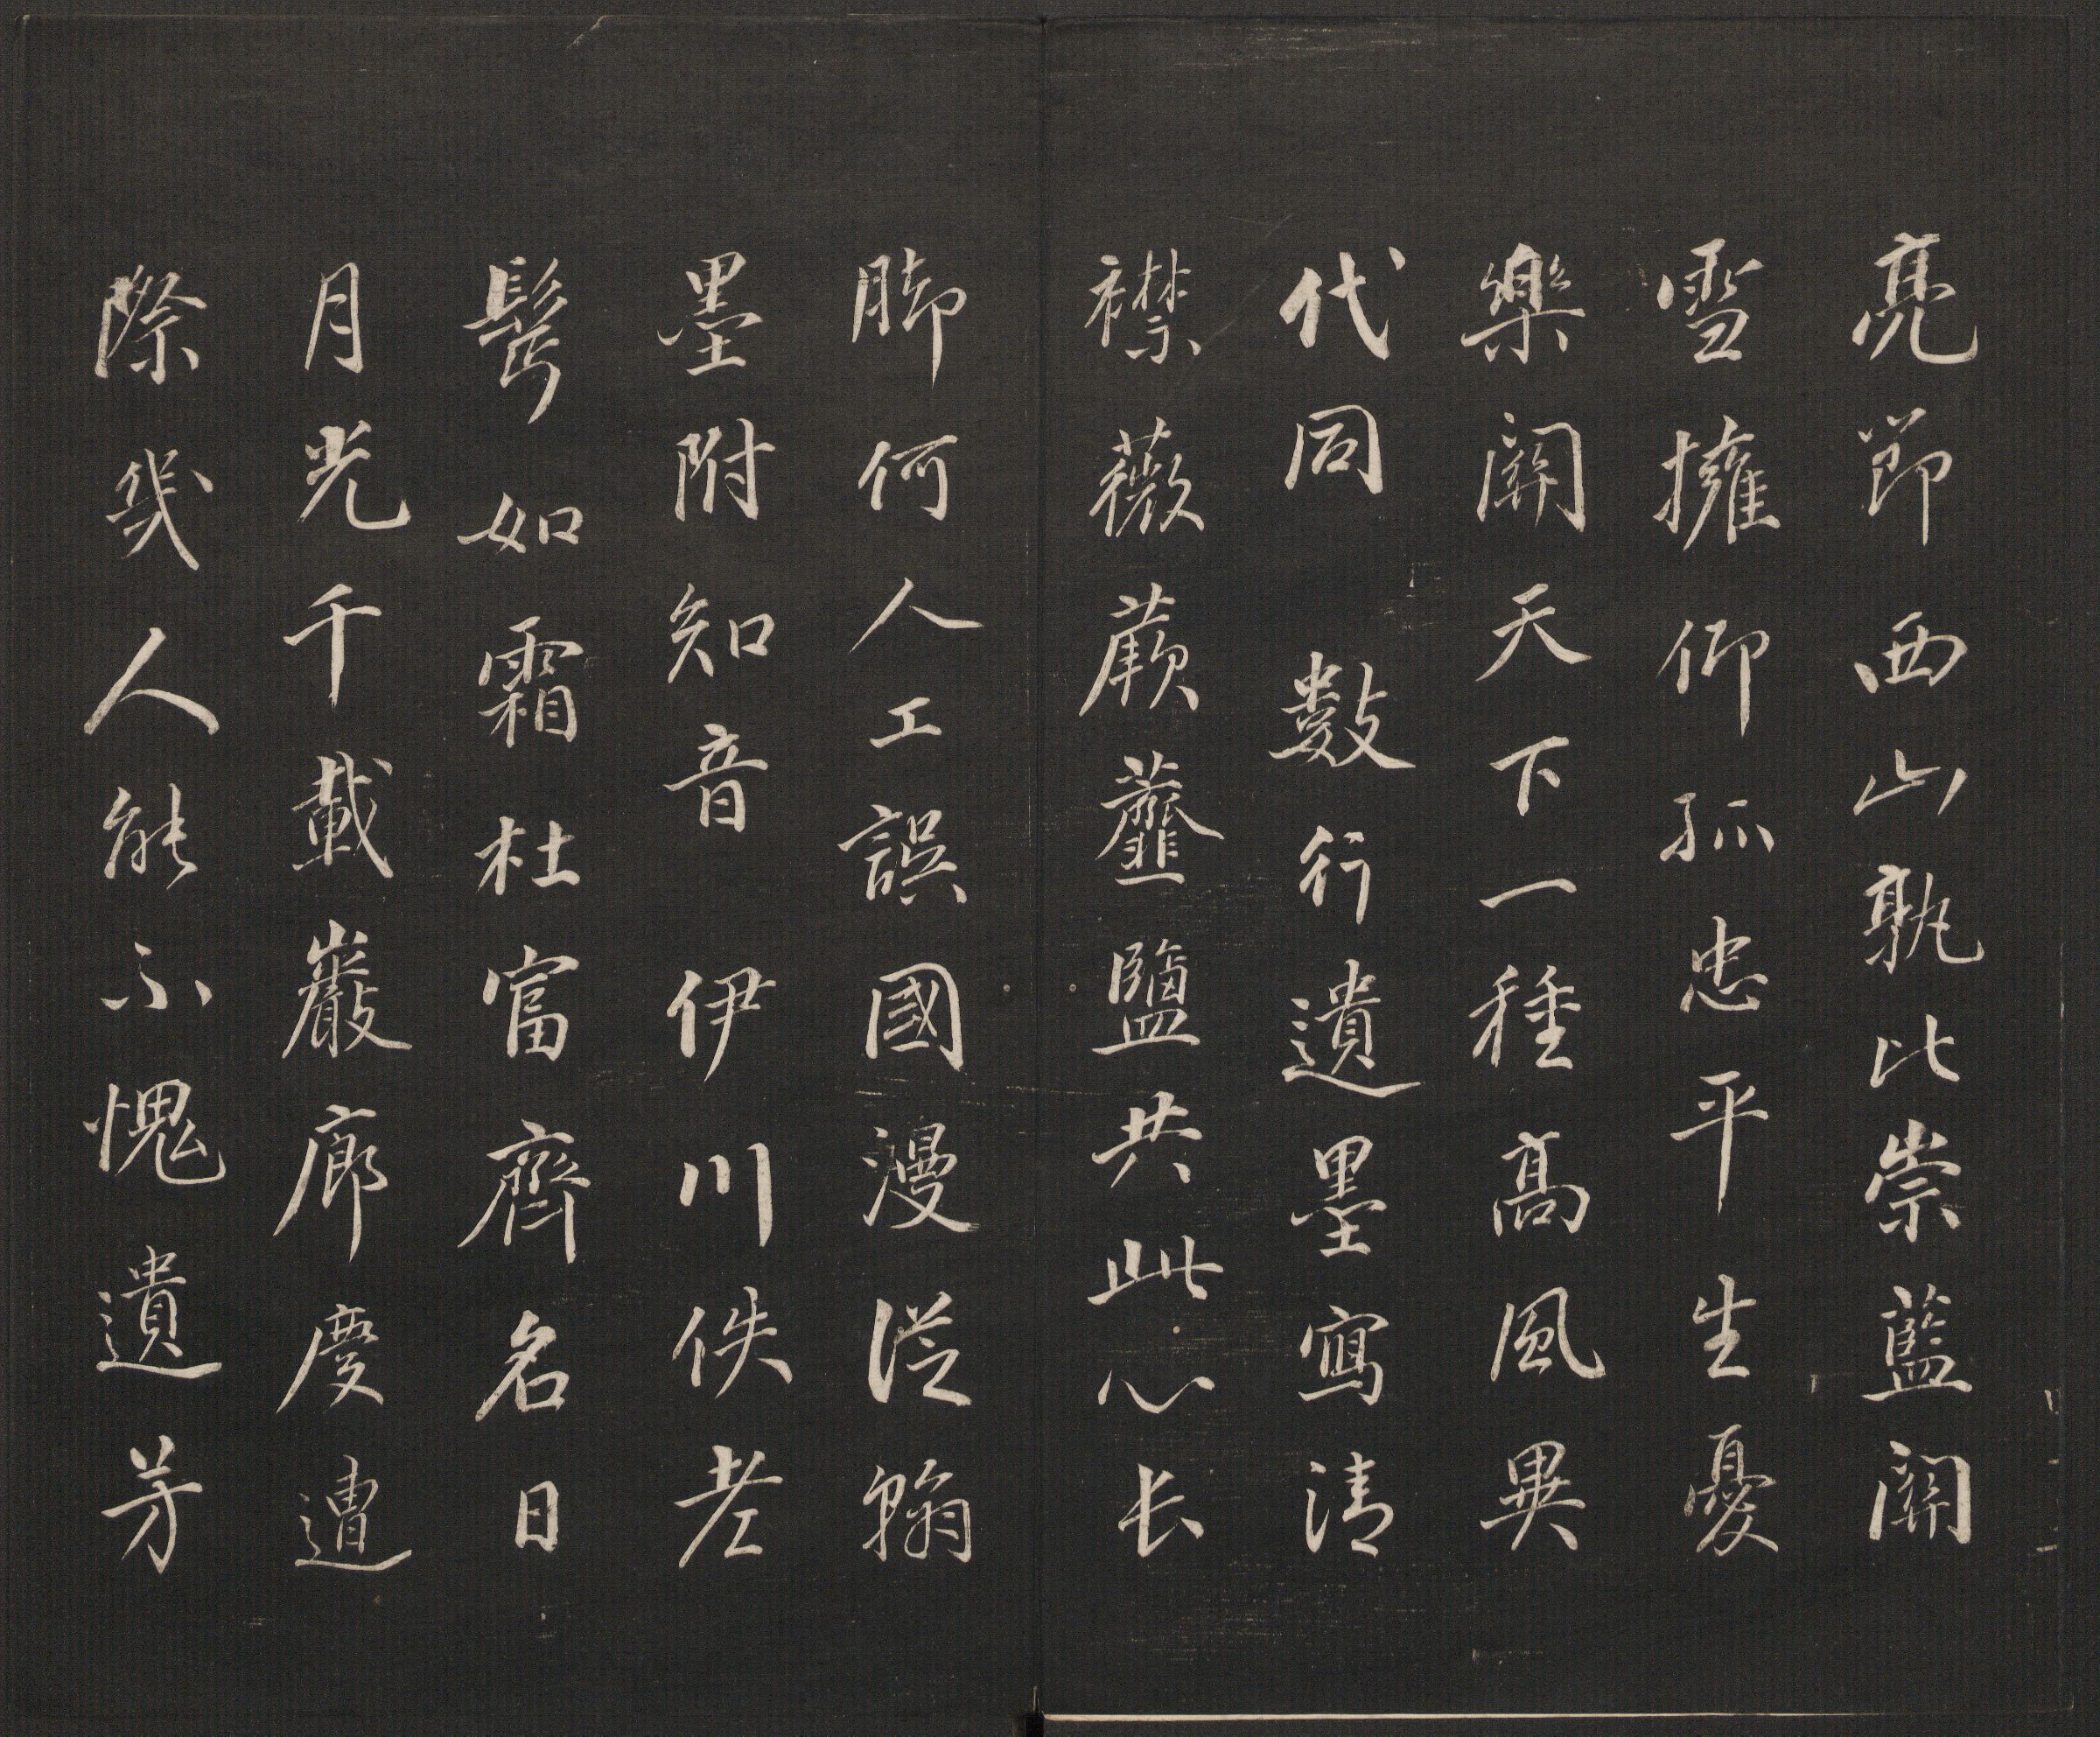 亮節西山孰比崇藍關
雪擁仰孤忠平生憂
樂關天下一種高風異
代同 數行遺墨寫清
襟薇蕨虀鹽共此心長
脚何人工誤國漫從翰
墨附知音 伊川佚老
鬢如霜杜富齊名日
月光千載巖廊慶遭
際幾人能不愧遺芳